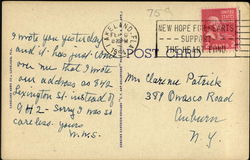 75¢
LAKELAND, FLA.
NEW HOPE FOR HEARTS
SUPPORT
THE HEART FUND
POST CARD
I wrote you yesterday
and it has just come
over me that I wrote
our address as 842
Lexington St. instead of
942 - Sorry I was so
careless. Yours
W.M.S.
Mr. Clarence Patrick
389 Owasco Road
Auburn
N.Y.